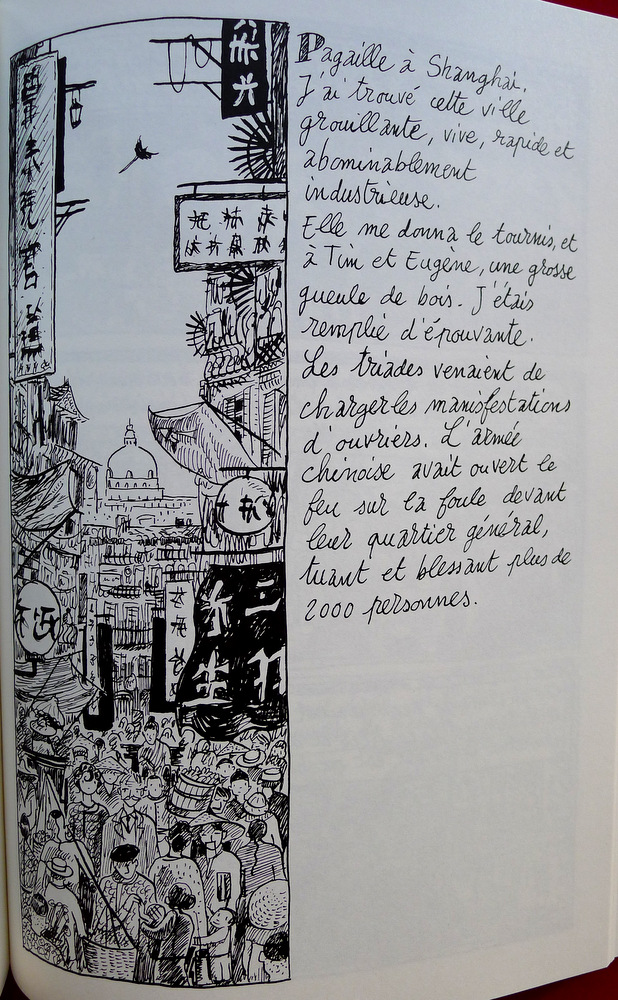 Pagaille à Shanghai.
J'ai trouvé cette ville
grouillante, vive, rapide et
abominablement
industrieuse.
Elle me donna le tournis, et
à Tim et Eugène, une grosse
gueule de bois. J'étais
remplie d'épouvante.
Les triades venaient de
charger les manifestations
d'ouvriers. L'armée
chinoise avait ouvert le
feu sur la foule devant
leur quartier général,
tuant et blessant plus de
2000 personnes.